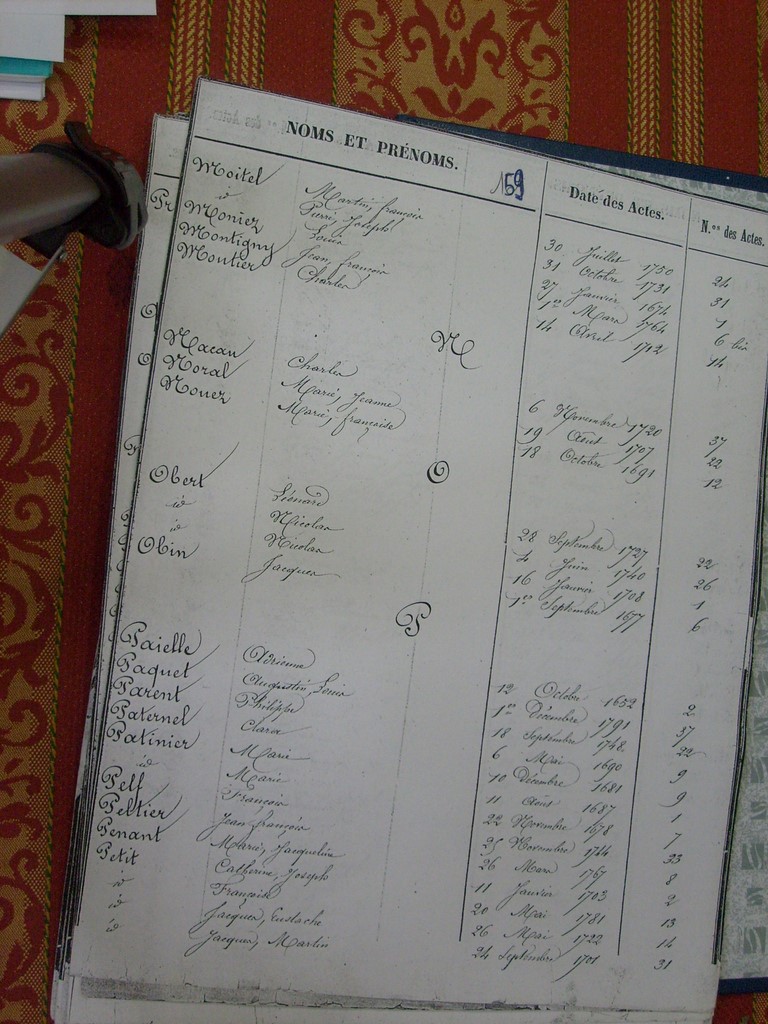 NOMS ET PRÉNOMS. 159 Date des Actes. N.os des Actes.
Moitel Martin, françois 30 Juillet 1750 24
id Pierre, Joseph 31 Octobre 1731 31
Moniez Louis 27 Janvier 1674 1
Montigny Jean, françois 1er Mars 1764 6 bis
Moutier Charles 14 Avril 1712 14
N
Nacau Charles 6 Novembre 1720 37
Noral Marie, Jeanne 19 Août 1707 22
Nouez Marie, françoise 18 Octobre 1691 12
O
Obert Liénard 28 Septembre 1727 22
id Nicolas 4 Juin 1740 26
id Nicolas 16 Janvier 1708 1
Obin Jacques 1er Septembre 1677 6
P
Paielle Adrienne 12 Octobre 1652 2
Paquet Augustin, Louis 1er Décembre 1791 37
Parent Philippe 18 Septembre 1748 22
Paternel Clara 6 Mai 1690 9
Patinier Marie 10 Décembre 1681 9
id Marie 11 Août 1687 1
Pelf François 22 Novembre 1678 7
Peltier Jean françois 25 Novembre 1744 33
Penant Marie, Jacqueline 26 Mars 1767 8
Petit Catherine, Joseph 11 Janvier 1703 2
id Françoise 20 Mai 1781 13
id Jacques, Eustache 26 Mai 1722 14
id Jacques, Martin 24 Septembre 1701 31